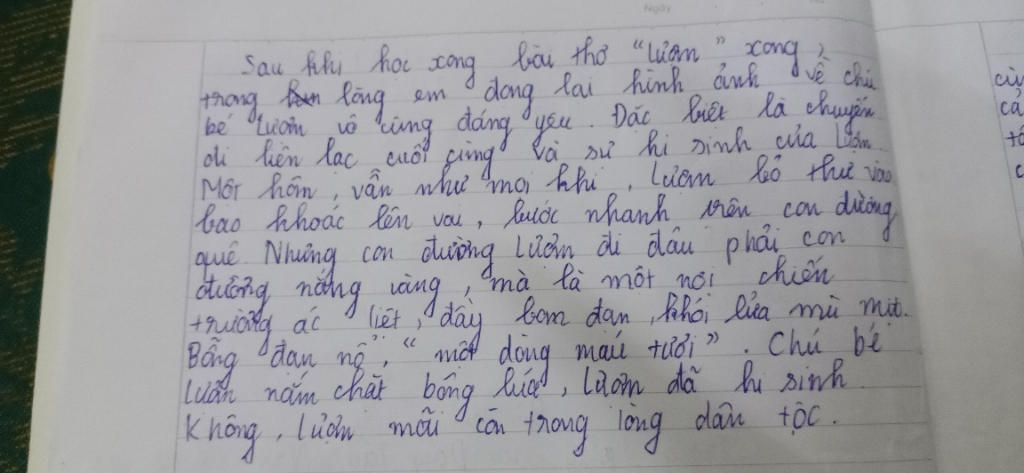 Ngày
Sau khi học xong bài thơ "Lượm" xong,
trong lòng em đọng lại hình ảnh về chú
bé Lượm vô cùng đáng yêu. Đặc biệt là chuyến
đi liên lạc cuối cùng và sự hi sinh của Lượm.
Một hôm, vẫn như mọi khi, Lượm bỏ thư vào
bao khoác lên vai, bước nhanh trên con đường
quê Nhưng con đường Lượm đi đâu phải con
đường nắng vàng, mà là một nơi chiến
trường ác liệt, đầy bom đạn, khói lửa mù mịt.
Bỗng đạn nổ, "một dòng máu tươi". Chú bé
Lượm nắm chặt bông lúa, Lượm đã hi sinh
Không, Lượm mãi còn trong lòng dân tộc.